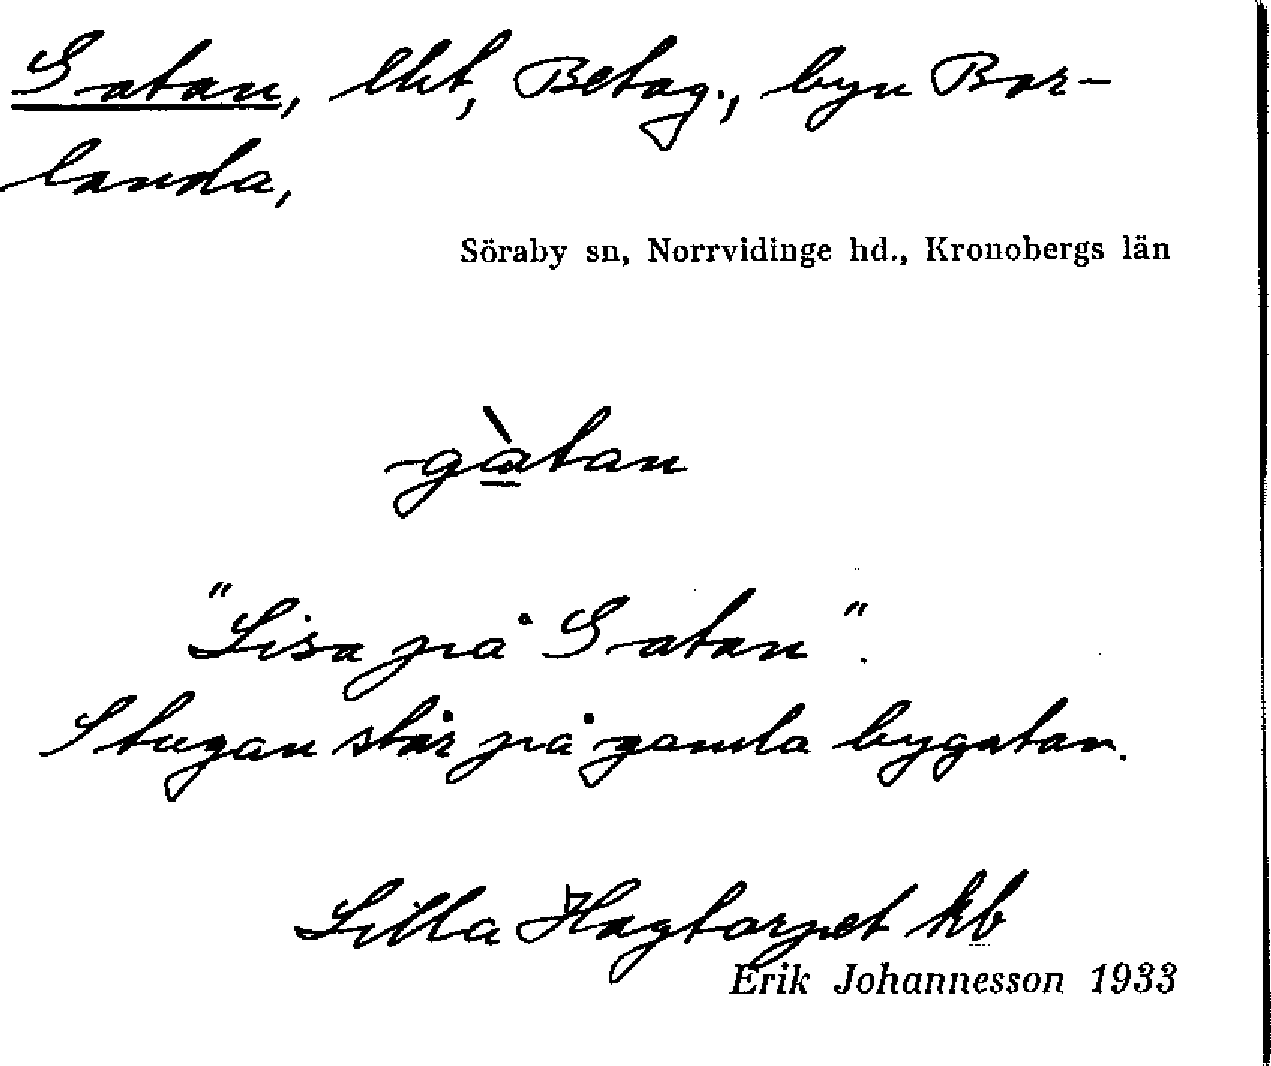 Gatan, lht, Betag., byn Bor-
landa,
Söraby sn, Norrvidinge hd., Kronobergs län
gàtan
"Lisa på Gatan".
Stugan står på gamla bygatan.
Lilla Hagtorpet kb
Erik Johannesson 1933